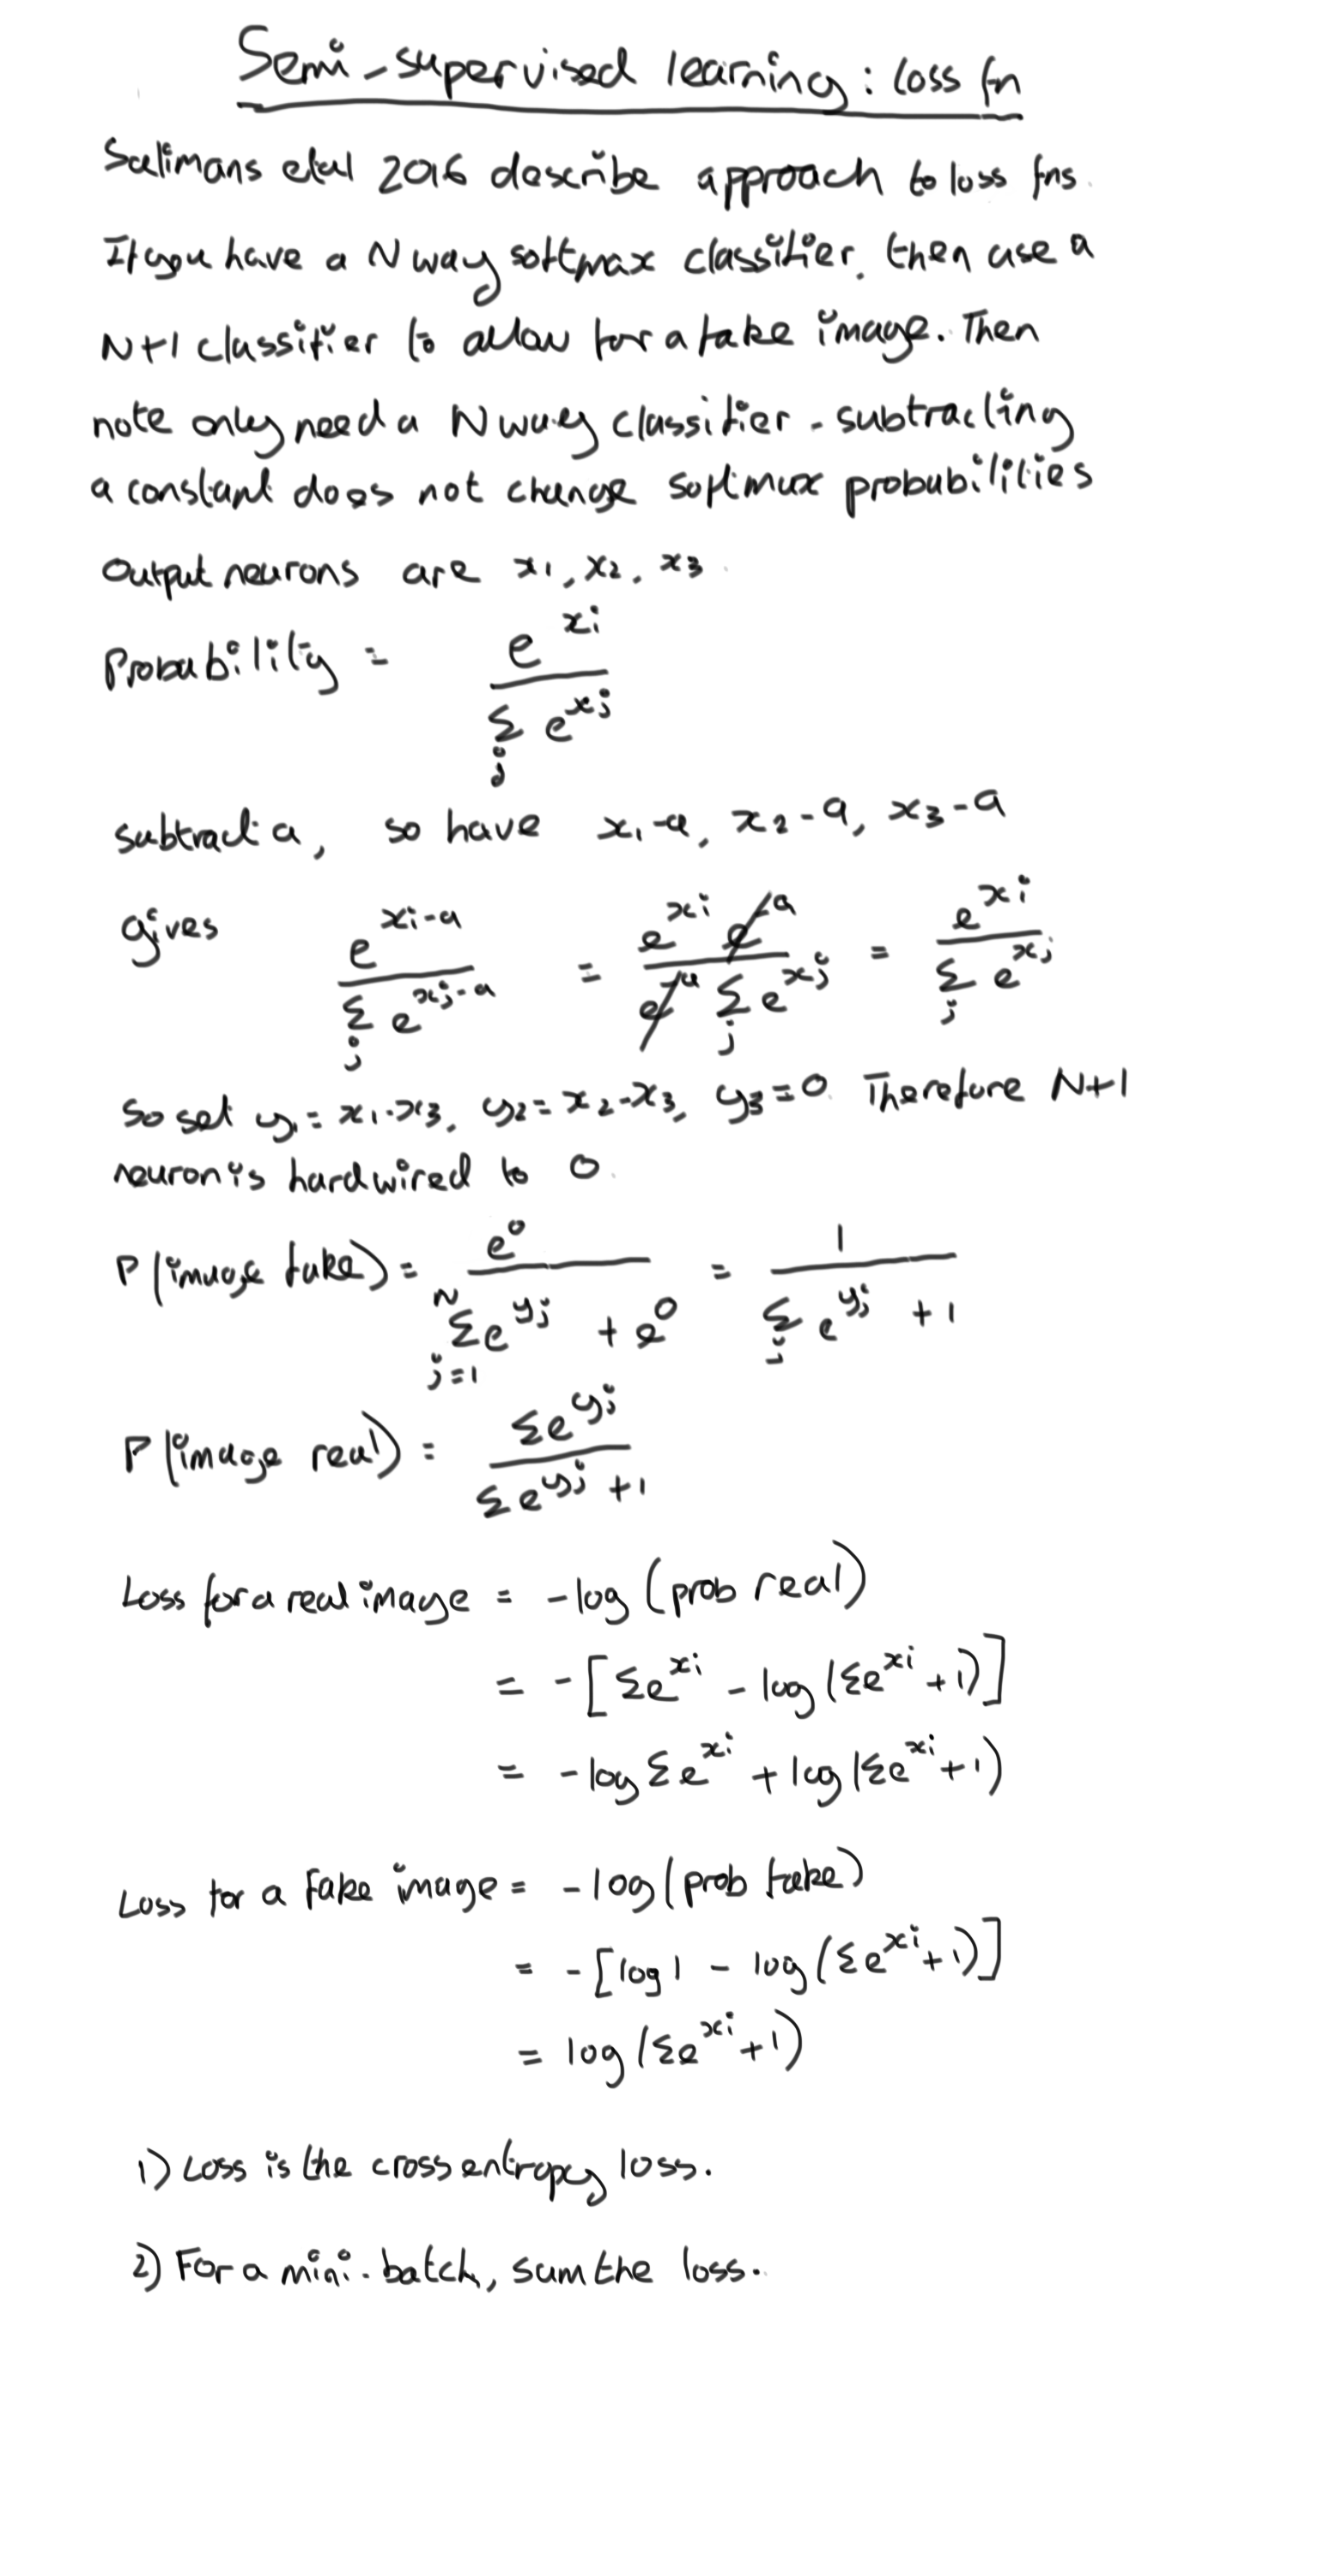 Semi-supervised learning: Loss fn
Salimans etal 2016 describe approach to loss fns.
If you have a N way softmax classifier, then use a
N+1 classifier to allow for a fake image. Then
note only need a N way classifier - subtracting
a constant does not change softmax probabilities
Output neurons are x₁, x₂, x₃.
Probability = e^{xi} / Σ_j e^{xj}
subtract a, so have x₁-a, x₂-a, x₃-a
gives e^{xi-a} / Σ_j e^{xj-a} = e^{xi} e^{-a} / e^{-a} Σ_j e^{xj} = e^{xi} / Σ_j e^{xj}
So set y₁ = x₁-x₃, y₂ = x₂-x₃, y₃ = 0. Therefore N+1
neuron is hardwired to 0.
P(image fake) = e^0 / Σ_{j=1}^N e^{yj} + e^0 = 1 / Σ_j e^{yj} + 1
P(image real) = Σe^{yj} / Σe^{yj} + 1
Loss for a real image = -log(prob real)
= -[Σe^{xi} - log(Σe^{xi} + 1)]
= -log Σe^{xi} + log(Σe^{xi} + 1)
Loss for a fake image = -log(prob fake)
= -[log1 - log(Σe^{xi} + 1)]
= log(Σe^{xi} + 1)
1) Loss is the cross entropy loss.
2) For a mini-batch, sum the loss.